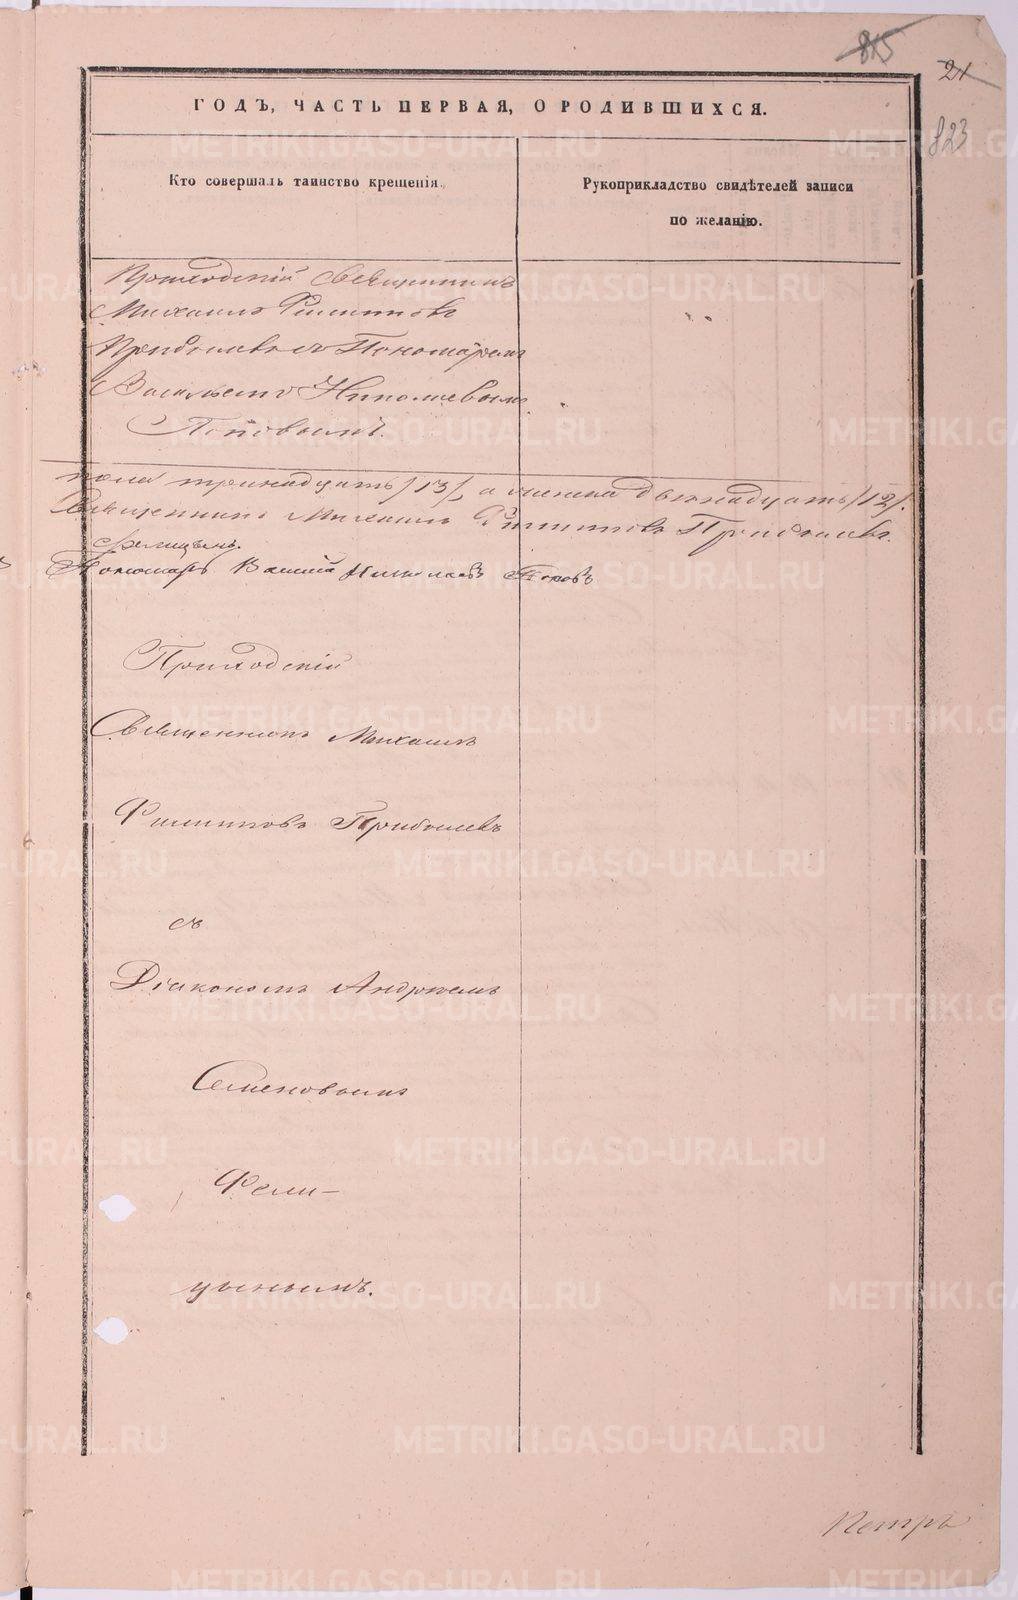 815
21
823
ГОДЪ, ЧАСТЬ ПЕРВАЯ, О РОДИВШИХСЯ.
Кто совершалъ таинство крещенія.
Рукоприкладство свидѣтелей записи
по желанію.
Приходскій Священникъ
Михаилъ Филиповъ
Прибылевъ съ Пономаремъ
Васильемъ Николаевымъ
Поповымъ.
пола тринадцать /13/, а женска двенадцать /12/.
Священникъ Михаилъ Филиповъ Прибылевъ.
Фелицынъ.
Пономарь Василій Николаевъ Поповъ
Приходскій
Священникъ Михаилъ
Филиповъ Прибылевъ
съ
Діакономъ Андреемъ
Семеновымъ
Фели-
цынымъ.
Петръ
METRIKI.GASO-URAL.RU